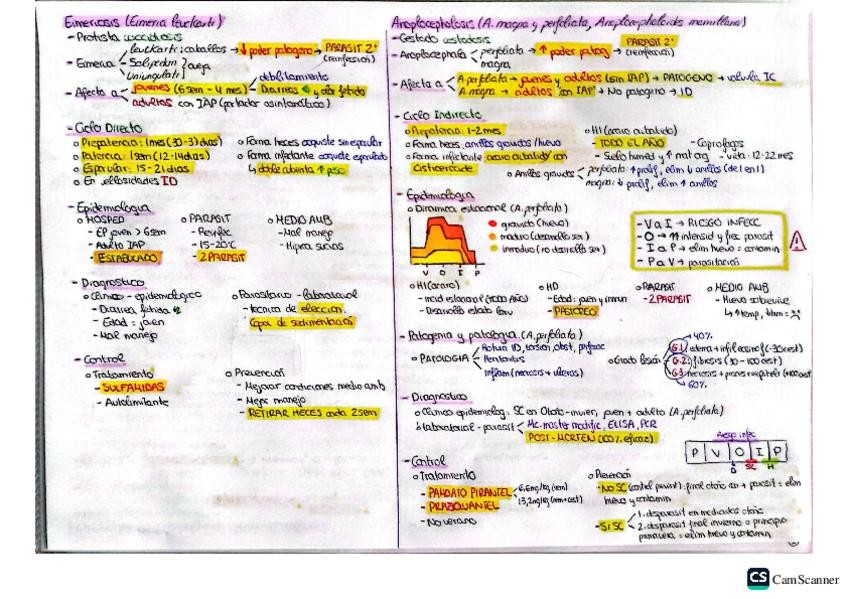 Eimeriosis (Eimeria leuckarti)
- Protista coccidiosis
- Eimeria
leuckarti: caballos → ↓ poder patogeno → PARASIT 2ª
(reinfeccion)
- Solipedum
- Uniungulati
- Afecta a
jovenes (6 sem - 4 mes)
debilitamiento
Diarrea y olor fetido
adultos con IAP (portador asintomatico)
- Ciclo Directo
o Prepatencia: 1 mes (30-31 dias)
o Patencia: 1 sem (12-14 dias)
o Esporular: 15-21 dias
o En vellosidades ID
o Forma heces ooquiste sin esporular
o Forma infectante ooquiste esporulado
↳ doble cubierta ↑ peso
- Epidemiologia
o HOSPED
- EP joven > 6sem
- Adulto IAP
- ESTABULADO
o PARASIT
- Reinfec
- 15-20°C
- 2 PARASIT
o MEDIO AMB
- Mal manejo
- Hipica sucias
- Diagnostico
o Clinico - epidemiologico
- Diarrea fetida
- Edad = joven
- Mal manejo
o Parasitario - laboratorial
- tecnica de eleccion
Copa de sedimentacion
- Control
o Tratamiento
- SULFAMIDAS
- Autolimitante
o Prevencion
- Mejorar condiciones medio amb
- Mejor manejo
- RETIRAR HECES cada 2sem
Anoplocephalosis (A. magna y perfoliata, Anoplocephaloides mamillana)
- Cestodo cestodosis
- Anoplocephala
perfoliata → ↑ poder patog → PARASIT 2ª
(reinfeccion)
magna
- Afecta a
A. perfoliata → jovenes y adultos (sin IAP) → PATOGENO → valvula IC
A. magna → adultos con IAP → No patogeno → ID
- Ciclo Indirecto
o Prepatencia: 1-2 mes
o Forma heces: anillos gravidos/huevo
o Forma infectante: acaro oribatido con
Cisticercoide
o HI (acaro oribatido)
- TODO EL AÑO
- Coprofagos
- Suelo humed y ↑ mat org
- vida: 12-22 mes
o Anillos gravidos
perfoliata: ↑ prolif, elim ↓ anillos (de 1 en 1)
magna: ↓ prolif, elim ↑ anillos
- Epidemiologia
o Dinamica estacional (A. perfoliata)
gravido (huevo)
maduro (desarrollo ser)
inmaduro (no desarrollo ser)
V O I P
- V a I → RIESGO INFECC
- O → ↑ intensid y frec parasit
- I a P → elim huevo = contamin
- P a V → parasitacion
o HI (acaro)
- incid estacional (TODO AÑO)
o HD
- Edad: joven y inmun
- PASTOREO
o PARASIT
- 2 PARASIT
o MEDIO AMB
- Huevo sobrevive
- Patogenia y patologia (A. perfoliata)
o PATOLOGIA
o Grado lesion
40%
G.1:
G.2: fibrosis (30-100 est)
G.3:
60%
- Diagnostico
o Clinico epidemiolog: SC en Otoño-invier, joven + adulto (A. perfoliata)
o Laboratorial - parasit
Mc-master modific, ELISA, PCR
POST-MORTEN (100% eficaz)
Riesgo infec
P V O I P
- Control
o Tratamiento
- PAMOATO PIRANTEL
6,6mg/kg (nem)
13,2mg/kg (nem + cest)
- PRAZIQUANTEL
- No verano
o Prevencion
- NO SC
final otoño
= elim
huevo y contamin
- Si SC
1. desparasit en mediados otoño
2. desparasit final invierno o principio
primavera = elim huevo y contamin
CS CamScanner